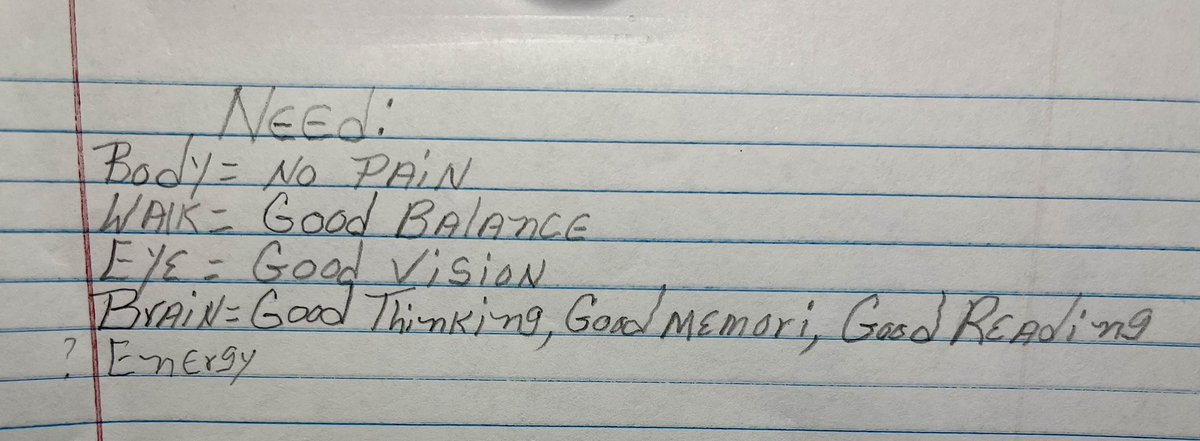 NEEd:
Body= NO PAiN
WAlK= Good BAlAnCE
EYE= Good ViSiON
BrAiN= Good Thinking, Good MEmori, Good REAding
? EnErgy